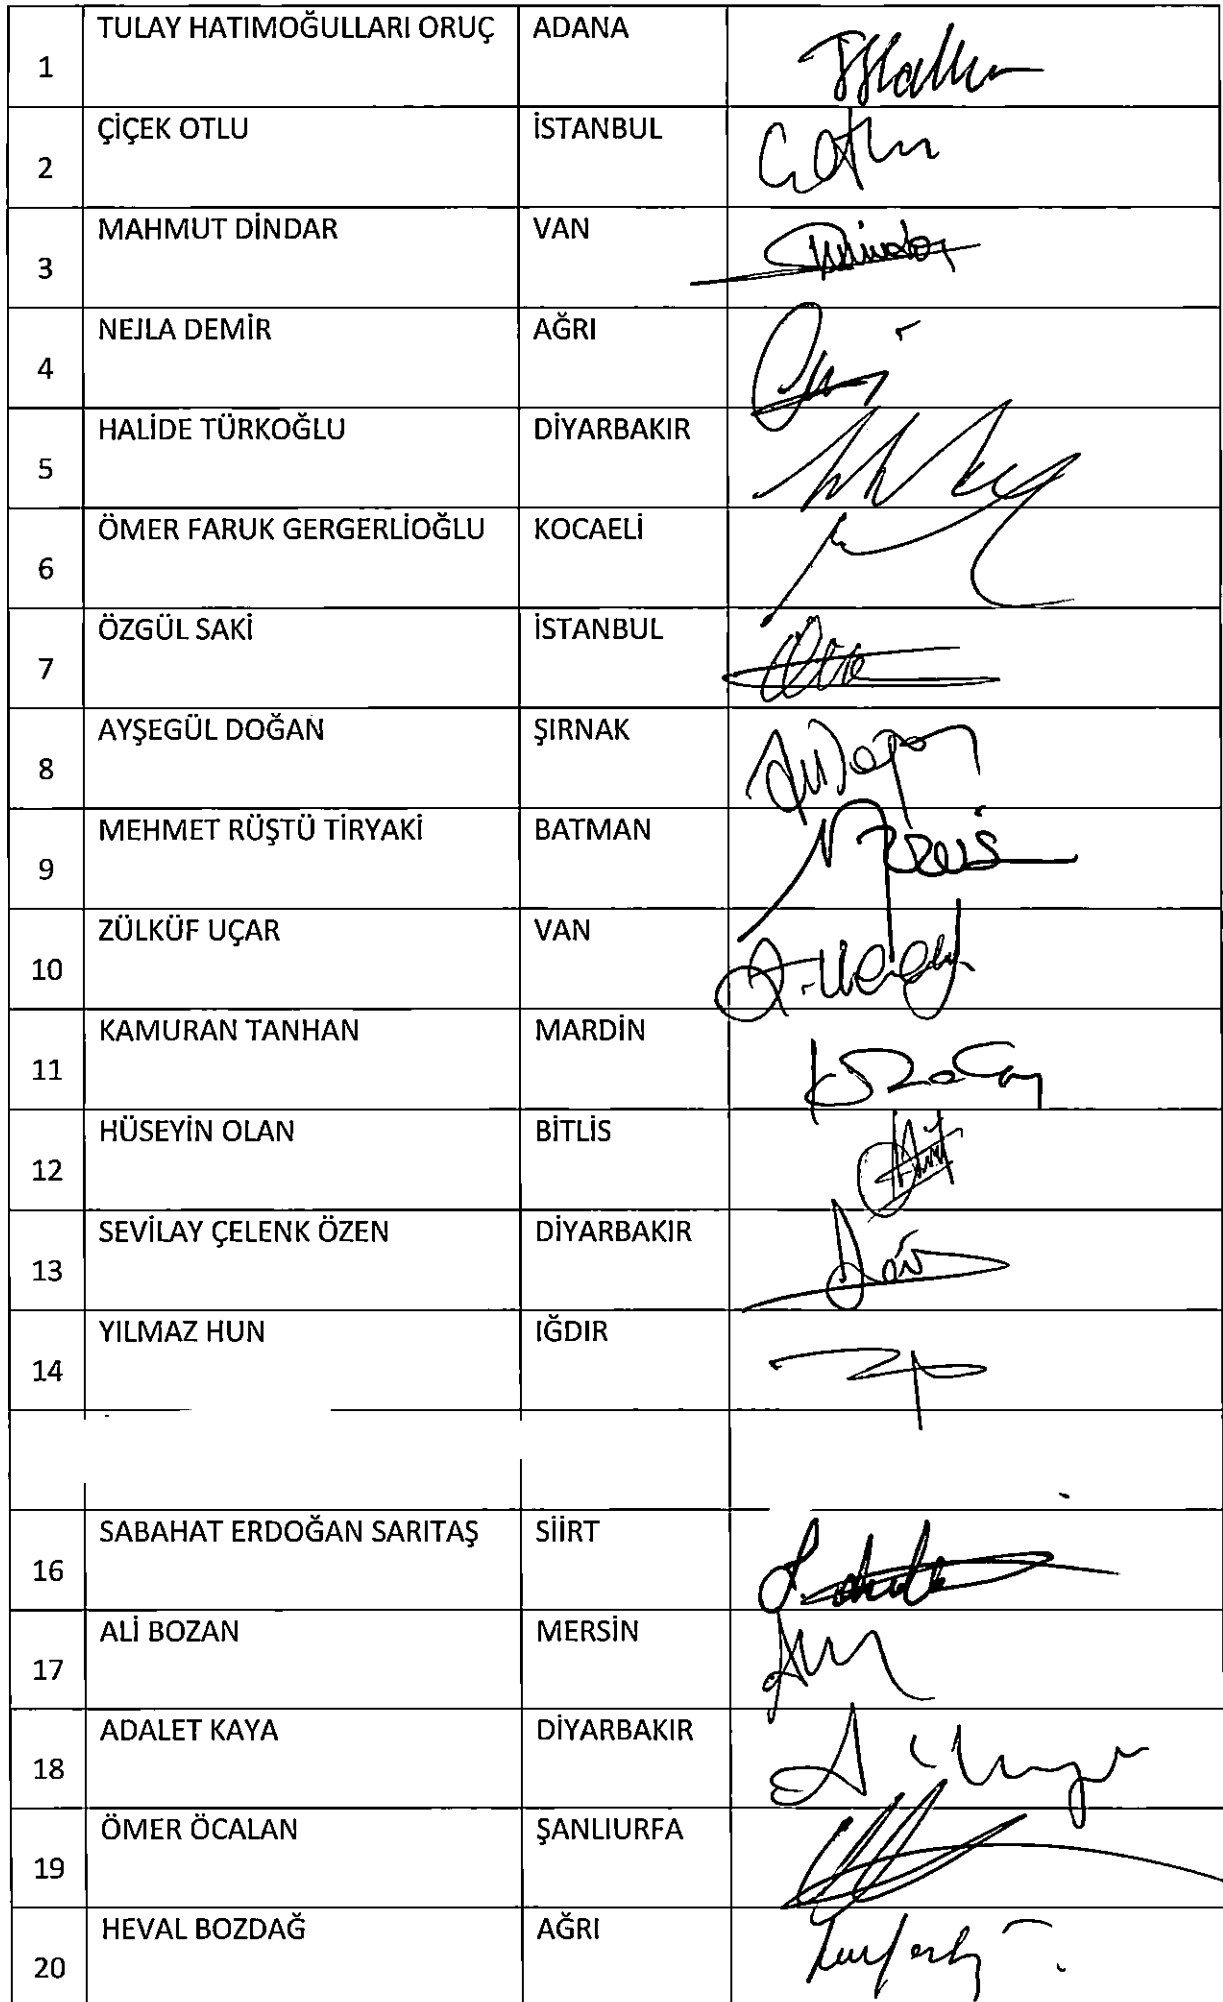 1 TULAY HATIMOĞULLARI ORUÇ ADANA
2 ÇİÇEK OTLU İSTANBUL
3 MAHMUT DİNDAR VAN
4 NEJLA DEMİR AĞRI
5 HALİDE TÜRKOĞLU DİYARBAKIR
6 ÖMER FARUK GERGERLİOĞLU KOCAELİ
7 ÖZGÜL SAKİ İSTANBUL
8 AYŞEGÜL DOĞAN ŞIRNAK
9 MEHMET RÜŞTÜ TİRYAKİ BATMAN
10 ZÜLKÜF UÇAR VAN
11 KAMURAN TANHAN MARDİN
12 HÜSEYİN OLAN BİTLİS
13 SEVİLAY ÇELENK ÖZEN DİYARBAKIR
14 YILMAZ HUN IĞDIR
16 SABAHAT ERDOĞAN SARITAŞ SİİRT
17 ALİ BOZAN MERSİN
18 ADALET KAYA DİYARBAKIR
19 ÖMER ÖCALAN ŞANLIURFA
20 HEVAL BOZDAĞ AĞRI